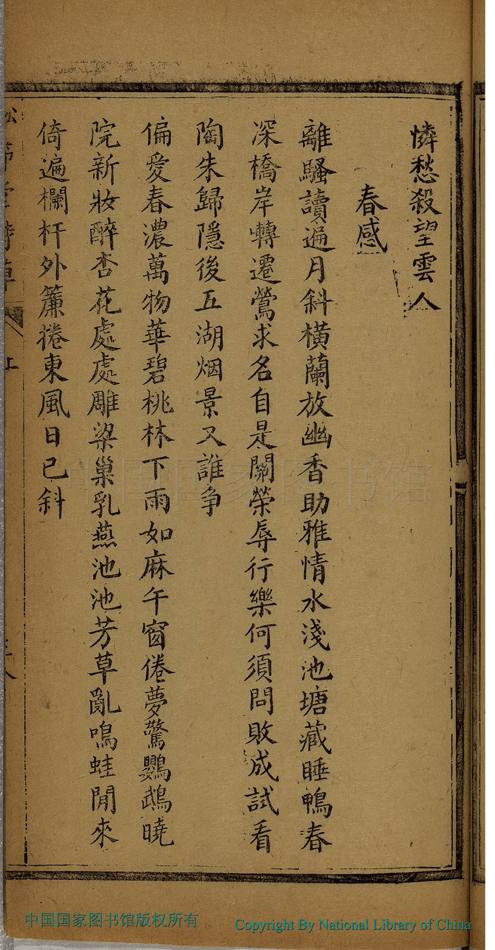 憐愁殺望雲人
春感
離騷讀遍月斜橫蘭放幽香助雅情水淺池塘藏睡鴨春
深橋岸轉遷鶯求名自是關榮辱行樂何須問敗成試看
陶朱歸隱後五湖烟景又誰爭
偏愛春濃萬物華碧桃林下雨如麻午窗倦夢驚鸚鵡曉
院新妝醉杏花處處雕梁巢乳燕池池芳草亂鳴蛙閒來
倚遍欄杆外簾捲東風日已斜
中国国家图书馆版权所有
Copyright By National Library of China